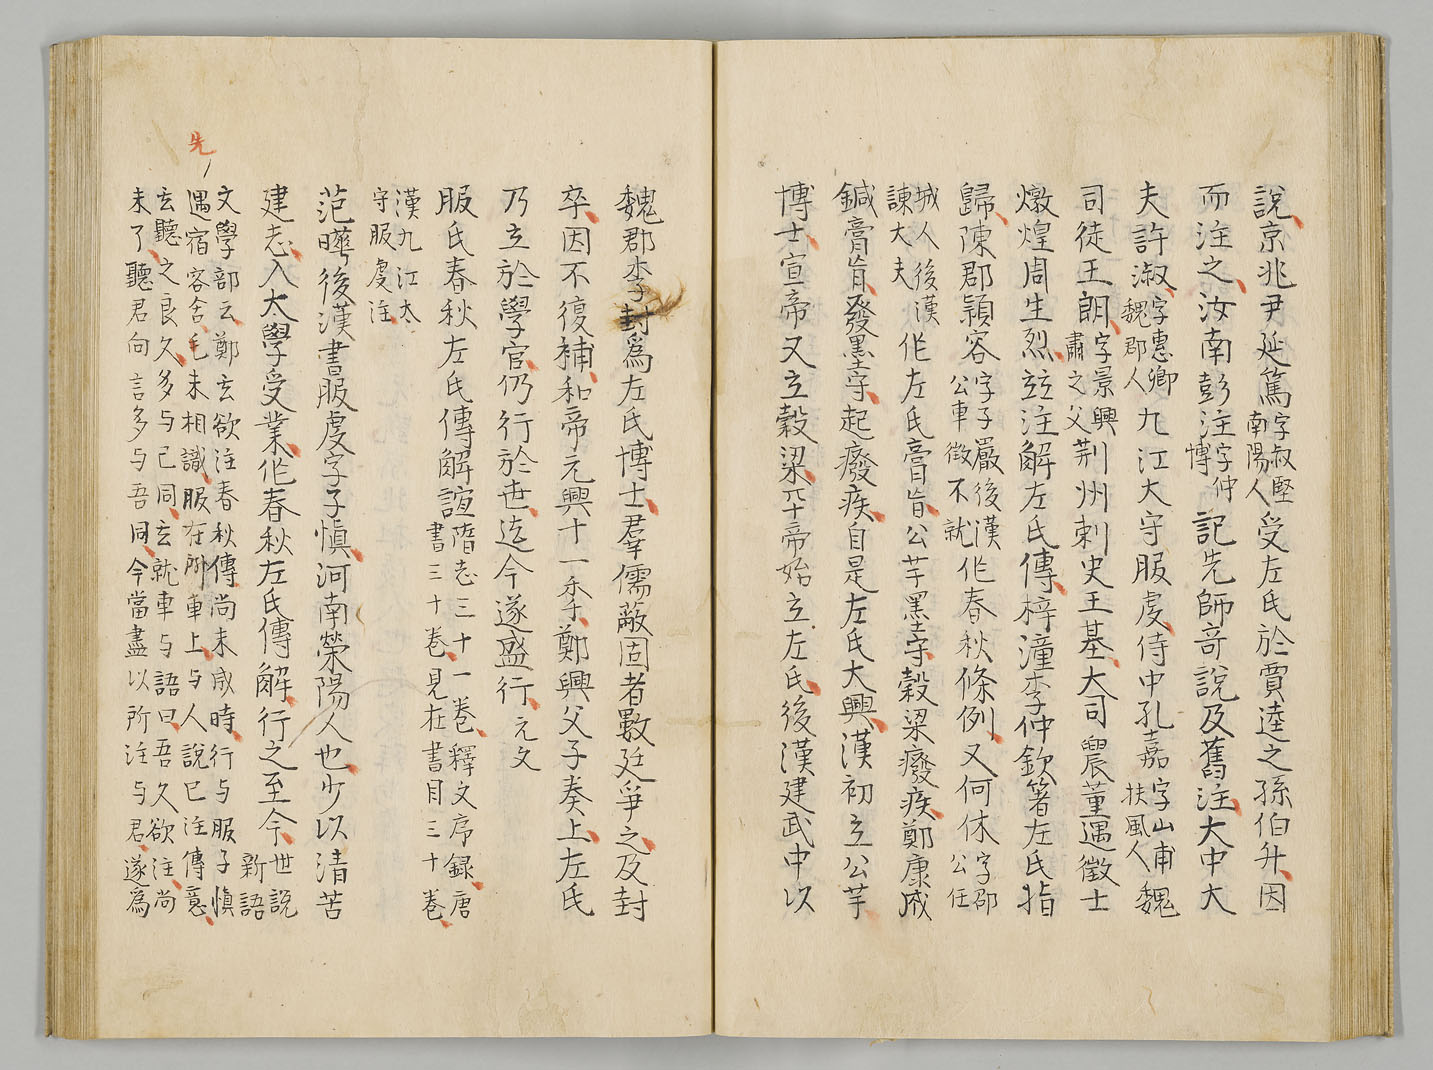 説京兆尹延篤字叔堅南陽人受左氏於賈逵之孫伯升因
而注之汝南彭注字仲博記先師奇説及舊注大中大
夫許淑字惠卿魏郡人九江大守服虔侍中孔嘉字山甫扶風人魏
司徒王朗字景興肅之父荆州刺史王基大司農董遇徵士
燉煌周生烈並注解左氏傳梓潼李仲欽著左氏指
歸陳郡潁容字子嚴後漢公車徵不就作春秋條例又何休字邵公任
城人後漢諫大夫作左氏膏肓公羊墨守穀梁癈疾鄭康成
鍼膏肓發墨守起癈疾自是左氏大興漢初立公羊
博士宣帝又立穀梁平帝始立左氏後漢建武中以
魏郡李封爲左氏博士羣儒蔽固者數廷爭之及封
卒因不復補和帝元興十一年鄭興父子奏上左氏
乃立於學官仍行於世迄今遂盛行元文
服氏春秋左氏傳解誼隋志三十一卷釋文序録唐書三十卷見在書目三十卷
漢九江太守服虔注
范曄後漢書服虔字子慎河南滎陽人也少以清苦
建志入太學受業作春秋左氏傳解行之至今世説新語
文學部云鄭玄欲注春秋傳尚未成時行与服子慎
遇宿客舎先未相識服在外車上与人説已注傳意
玄聽之良久多与己同玄就車与語曰吾久欲注尚
未了聽君向言多与吾同今當盡以所注与君遂爲
先